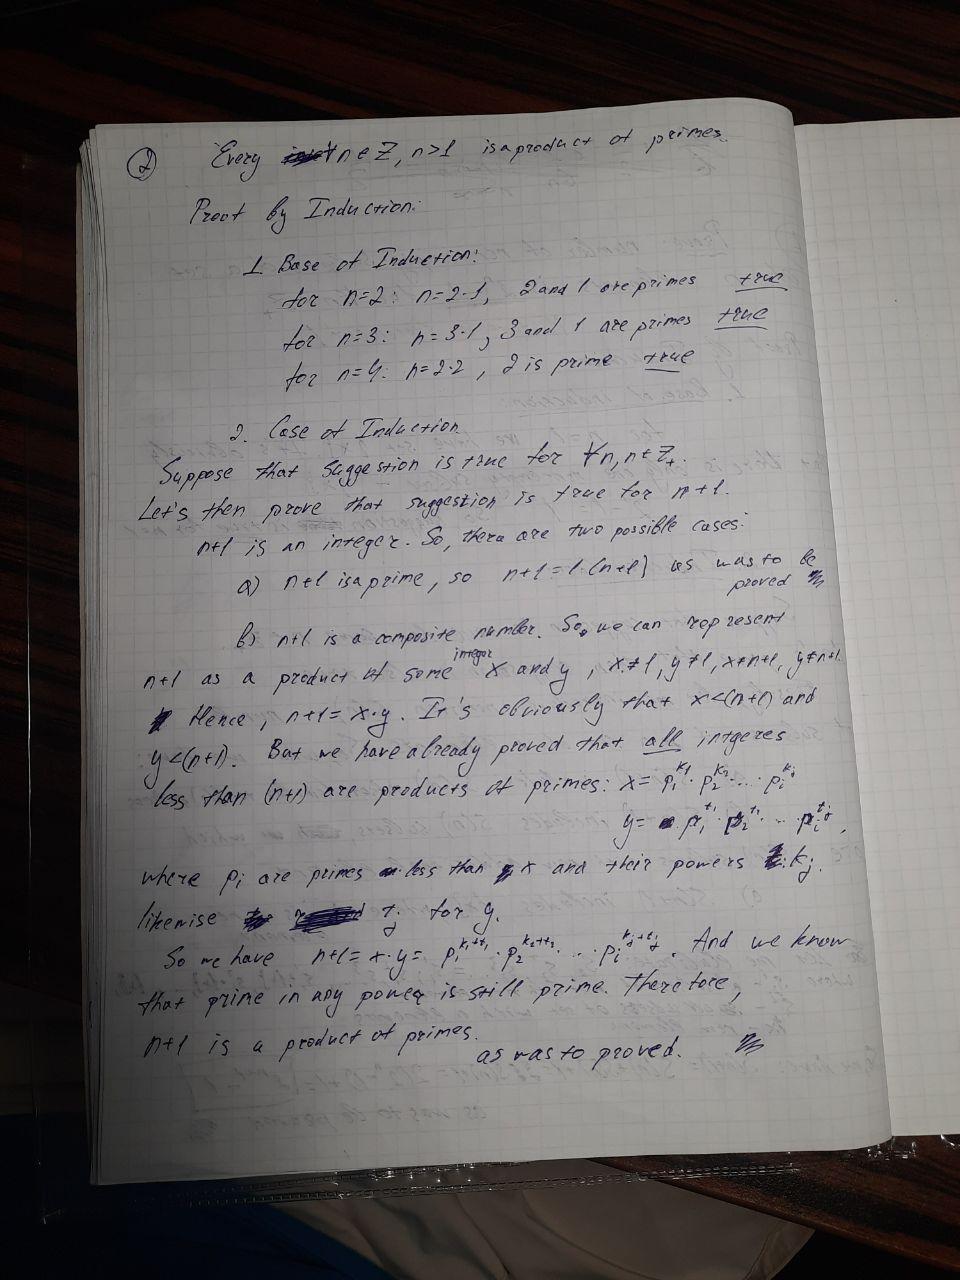 ② Every ∀n∈Z, n>1 is a product of primes.
Proof by Induction:
1 Base of Induction:
for n=2: n=2·1, 2 and 1 are primes true
for n=3: n=3·1, 3 and 1 are primes true
for n=4: n=2·2, 2 is prime true
2. Case of Induction
Suppose that suggestion is true for ∀n, n∈Z₊.
Let's then prove that suggestion is true for n+1.
n+1 is an integer. So, there are two possible cases:
a) n+1 is a prime, so n+1=1·(n+1) as was to be
proved
b) n+1 is a composite number. So, we can represent
n+1 as a product of some integer x and y, x≠1, y≠1, x≠n+1, y≠n+1.
Hence, n+1=x·y. It's obviously that x<(n+1) and
y<(n+1). But we have already proved that all intgeres
less than (n+1) are products of primes: x= p₁^k₁ · p₂^k₂ ... · pᵢ^kⱼ
y= p₁^t₁ · p₂^t₂ ... pᵢ^tⱼ,
where pᵢ are primes less than x and their powers kⱼ.
likewise tⱼ for y.
So we have n+1=x·y= p₁^k₁+t₁ · p₂^k₂+t₂ ... · pᵢ^kⱼ+tⱼ. And we know
that prime in any power is still prime. Therefore,
n+1 is a product of primes.
as was to proved.